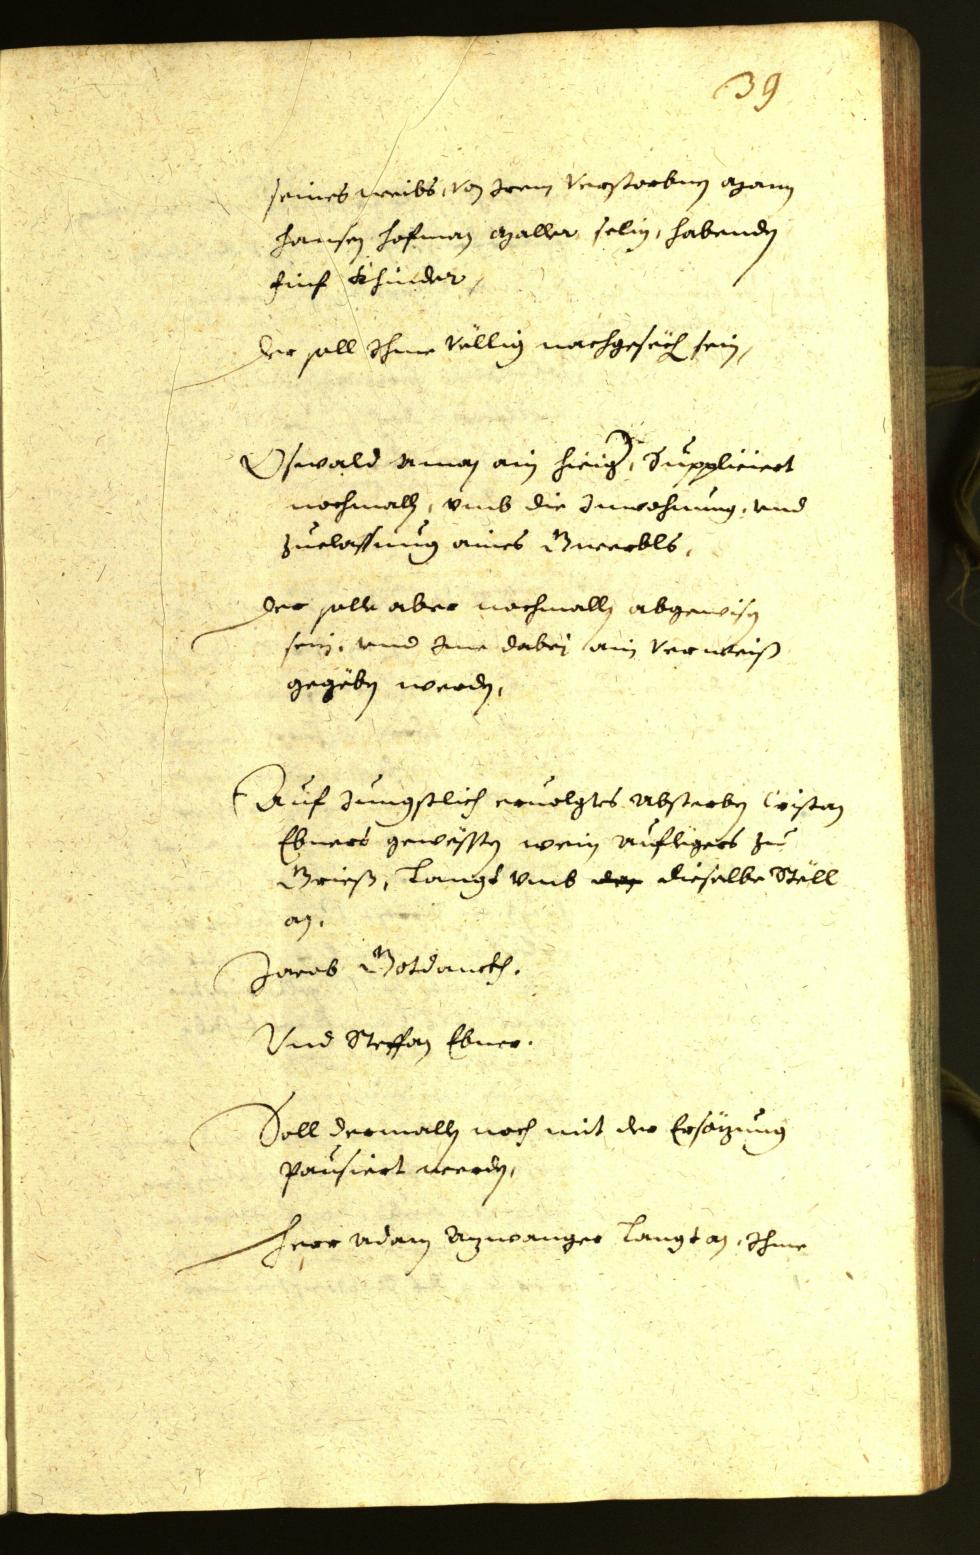 39
seines weibs, von Irem verstorbnen Mann
Hansen Hofman Maller selig, habenden
fünf Khinder,
Der soll Ihme völlig nachgesëch sein,
Oswald Aman ain Suppliciert
nochmalln, vmb die Inwohnung, vnd
zuelassung aines Gwerbls,
Der solle aber nochmalln abgewisen
sein, vnd Ime dabej ain verweiß
gegëben werden,
Auf Jungstlich ervolgtes Absterben Cristan
Ebners gewësten wein Auflegers zu
Grieß, langt vmb dieselbe Stëll
an,
Jacob Gotdanckh.
Vnd Steffan Ebner.
Soll dermalln noch mit der Ersäzung
Pausiert werden,
Herr Adam langt an, Ihme